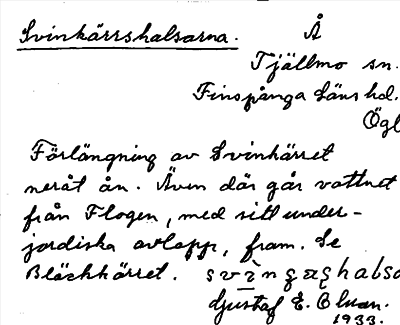 Svinkärrshalsarna. Å
Tjällmo sn.
Finspånga läns hd.
Ögl
Förlängning av Svinkärret
neråt ån. Även där går vattnet
från Flogen, med sitt under-
jordiska avlopp, fram. Se
Bläckkärret.
Gustaf E. Oluan.
1933.